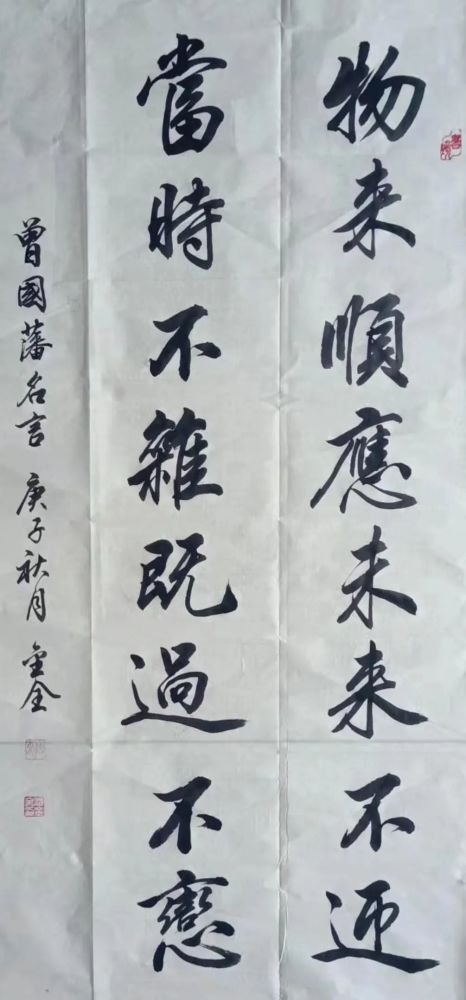 物来順應未来不迎
當時不雜既過不戀
曾國藩名言 庚子秋月 金全